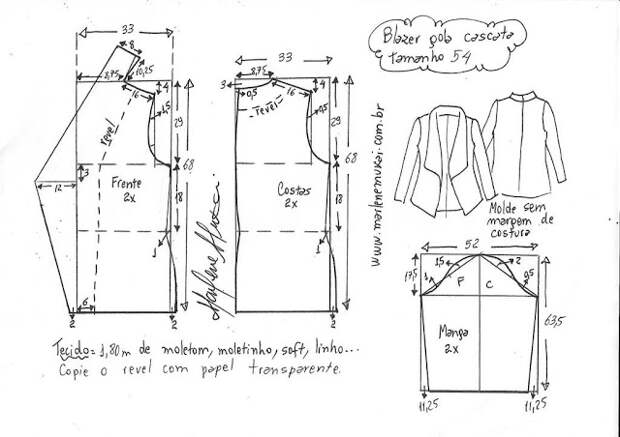 Blazer gola cascata
tamanho 54
33
8
8,75
10,25
4
16
1,5
29
Revel
3
12
Frente
2x
68
18
1
6
2
2
33
8,75
3
0,5
4
16
revel
0,5
29
68
Costas
2x
18
1
Marlene Mukai
www.marlenemukai.com.br
Molde sem
margem de
costura
52
17,5
1,5
2
1
0,5
F
C
Manga
2x
63,5
11,25
11,25
Tecido = 1,80m de moletom, moletinho, soft, linho...
Copie o revel com papel transparente.